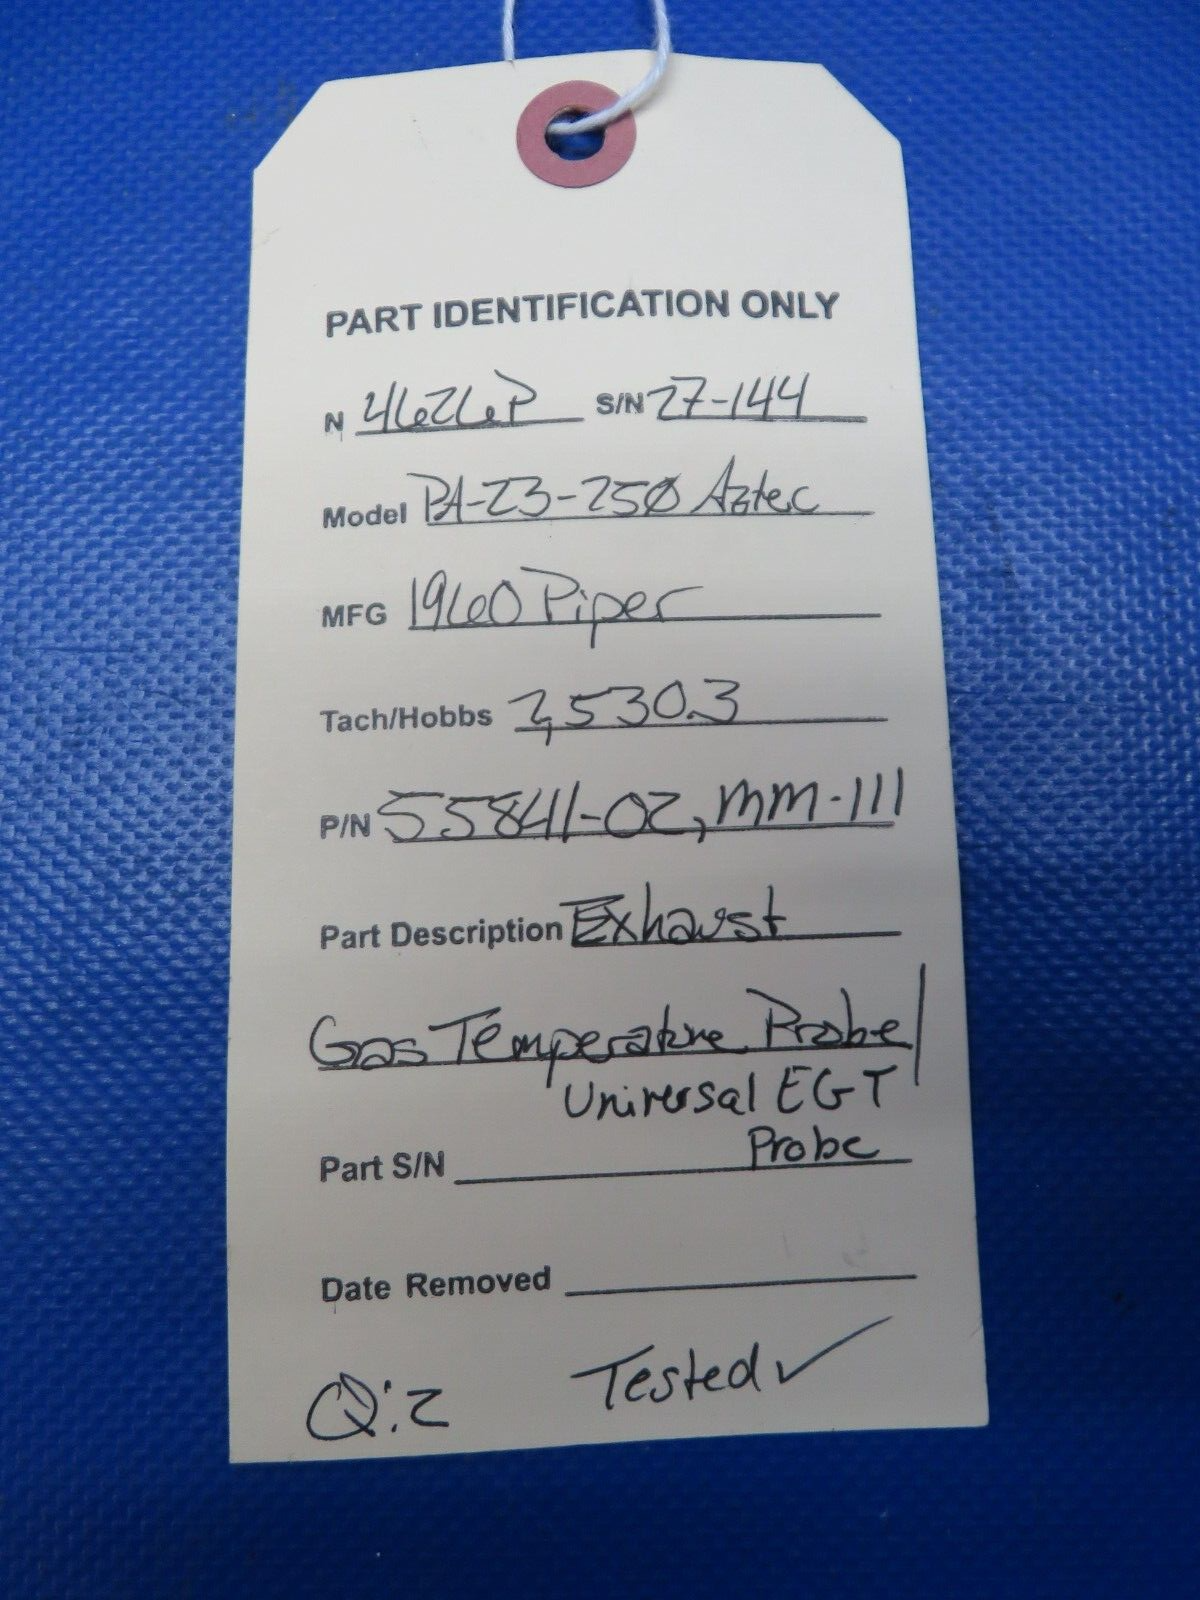 PART IDENTIFICATION ONLY
N 4626P S/N 27-144
Model PA-23-250 Aztec
MFG 1960 Piper
Tach/Hobbs 2,530.3
P/N 55841-02, MM-111
Part Description Exhaust
Gas Temperature Probe/
Universal EGT
Probe
Part S/N
Date Removed
Q:2 Tested ✓